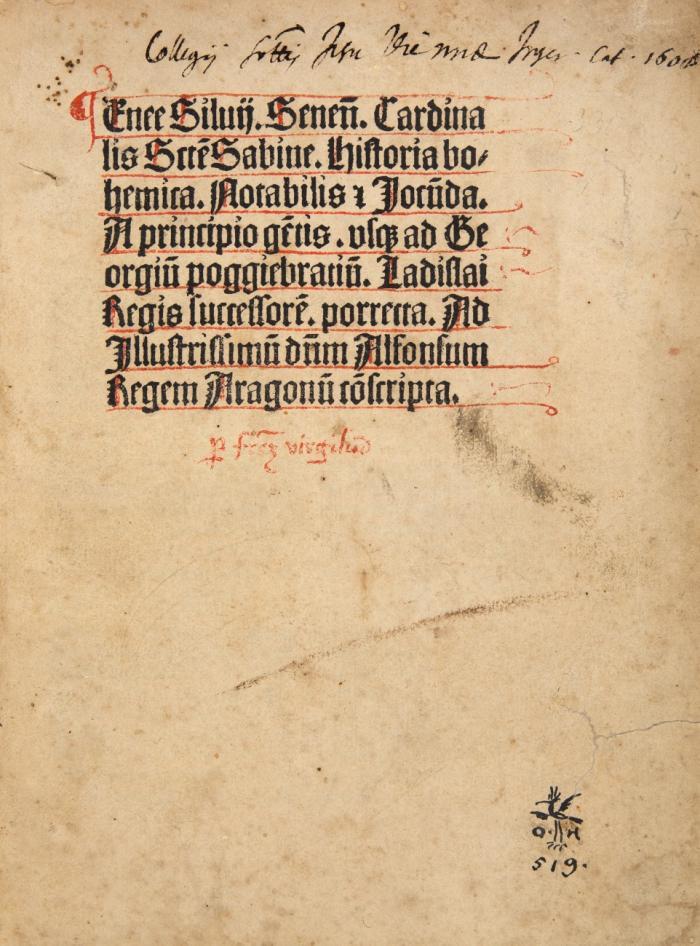 Collegij Soctis Jesu Viennæ Inser. Cat.
Enee Siluij. Seneñ. Cardina
lis Sctē Sabine. Historia bo⸗
hemica. Notabilis ⁊ Jocūda.
A principio gētis. vsqꝫ ad Ge
orgiū poggiebratiū. Ladislai
Regis successorē. porrecta. Ad
Illustrissimū dn̄m Alfonsum
Regem Aragonū cōscripta.
virgilium
O H
519.